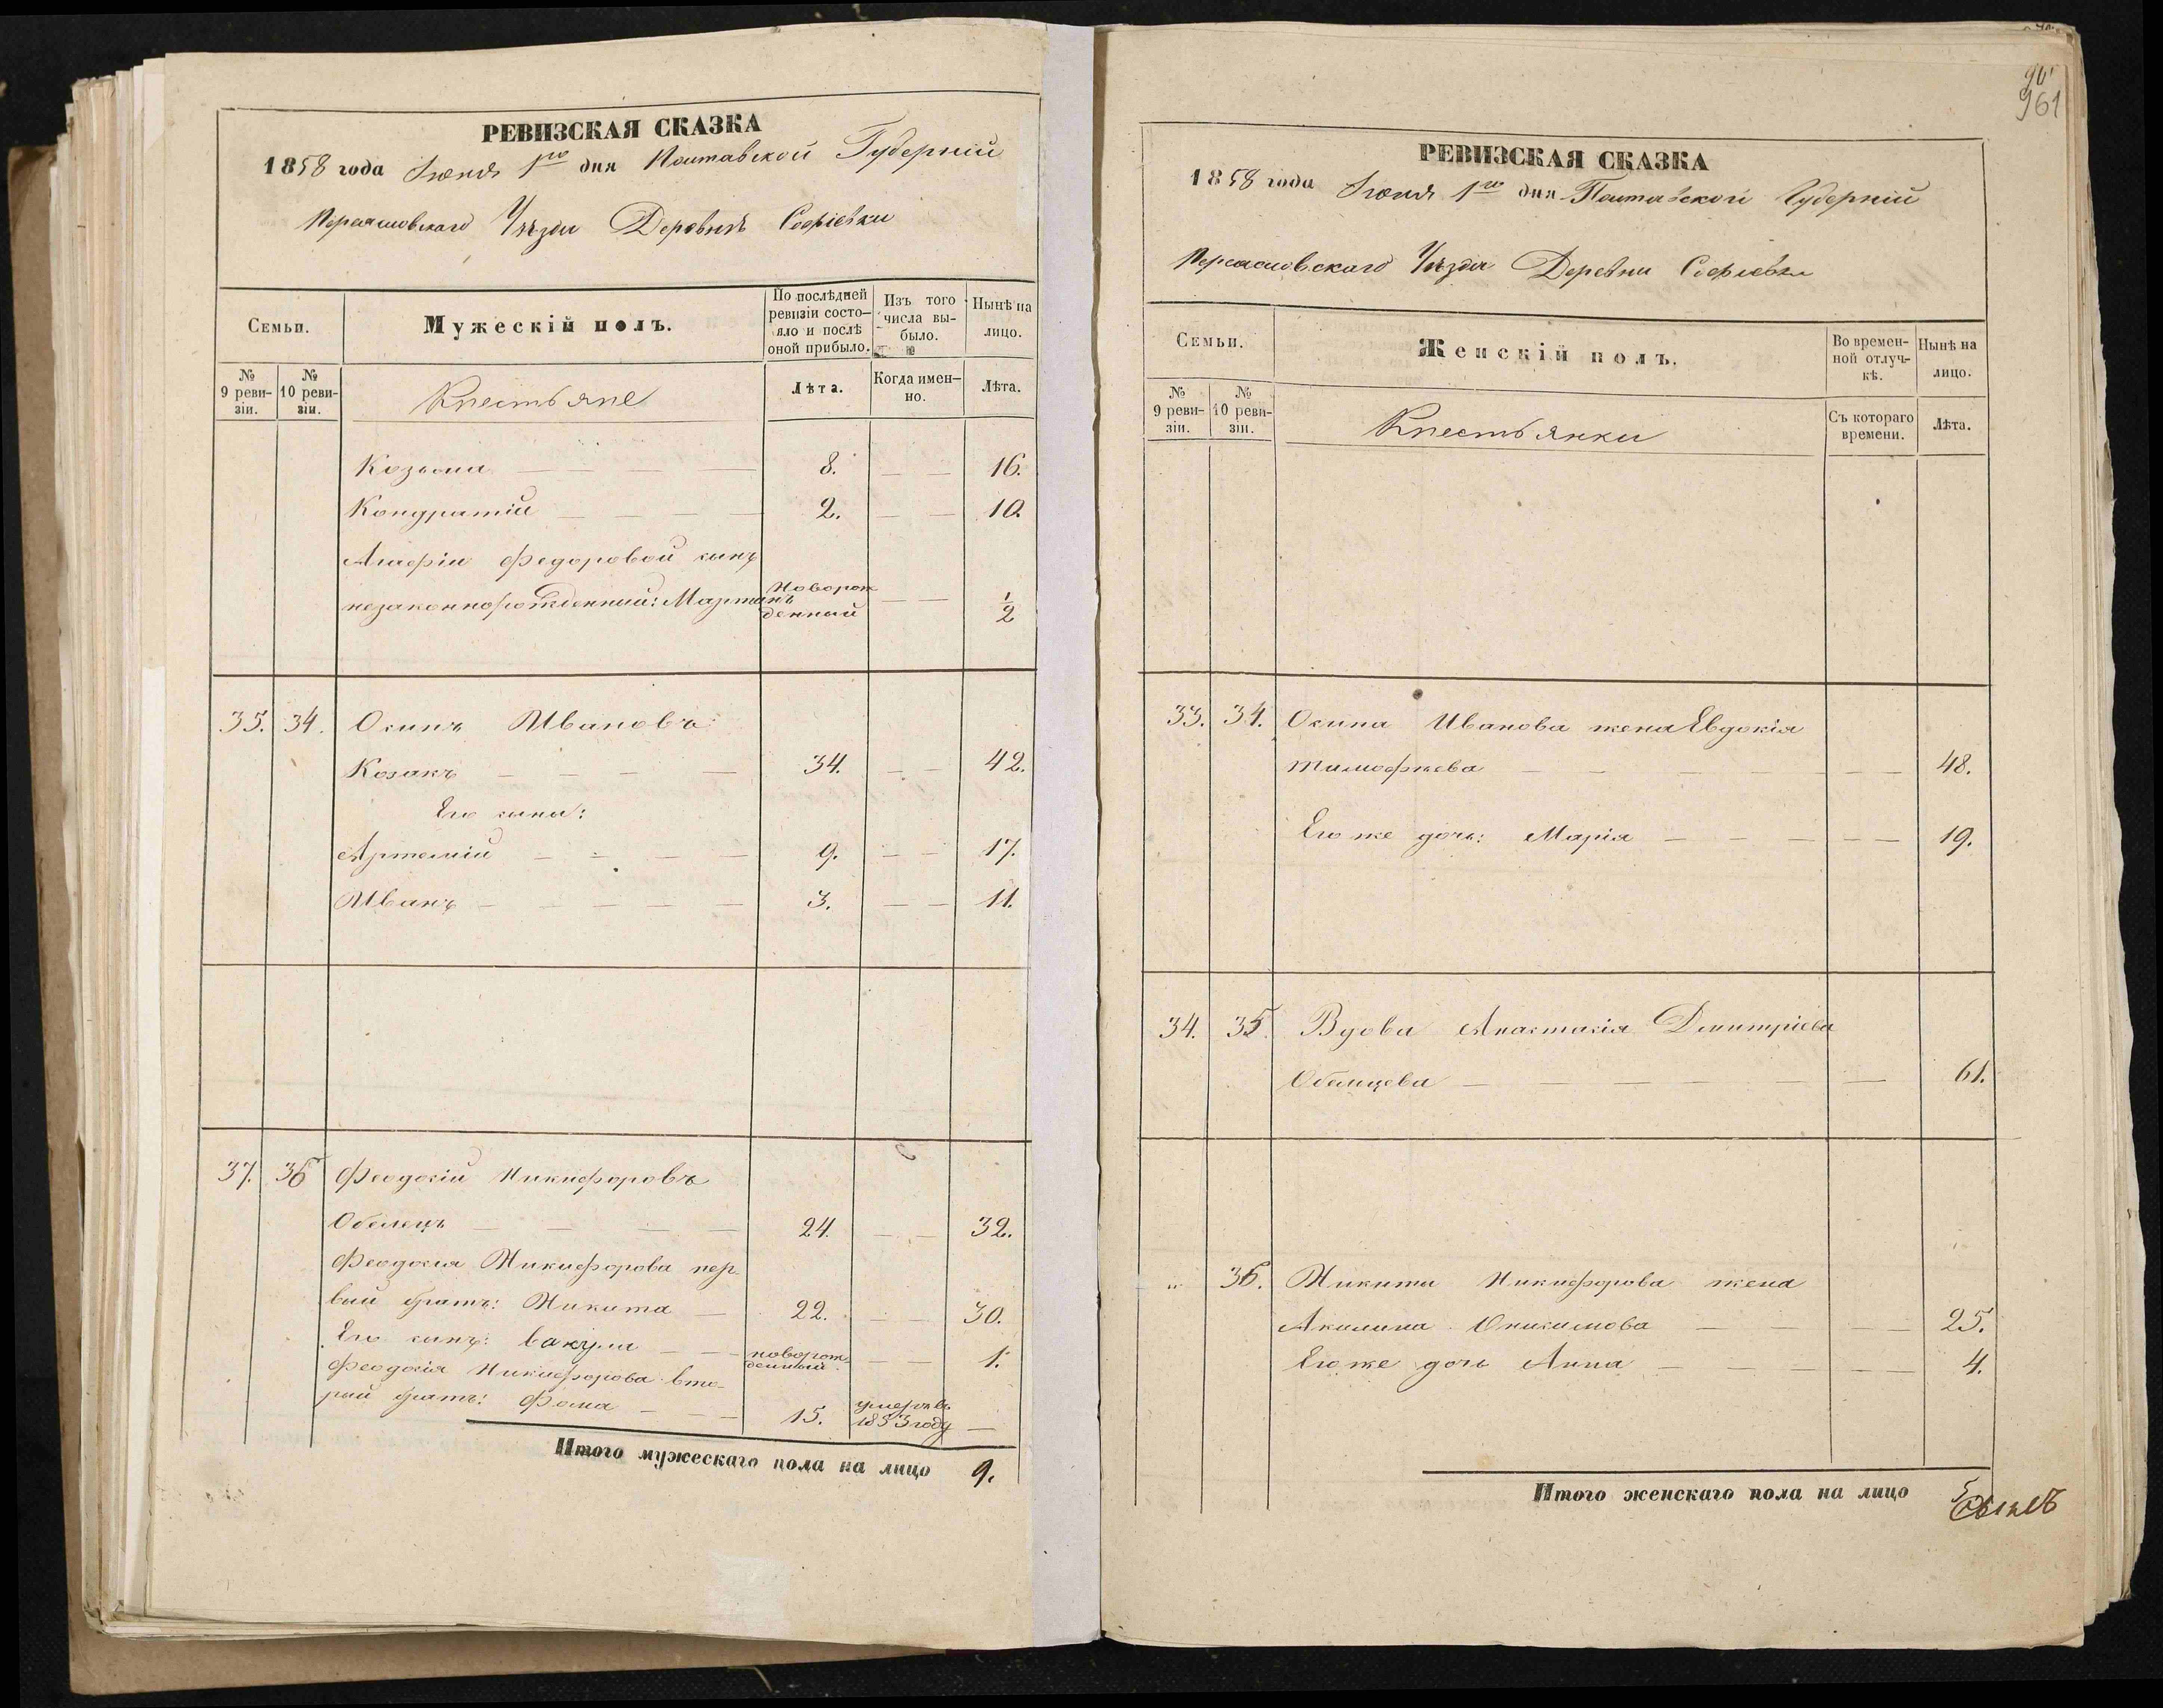 РЕВИЗСКАЯ СКАЗКА
1858 года Іюня 1го дня Полтавской Губерніи
Переяславскаго Уѣзда Деревнѣ Софіевки
Семьи.
Мужескій полъ.
По послѣдней ревизіи состо-
яло и послѣ
оной прибыло.
Изъ того
числа вы-
было.
Нынѣ на
лицо.
№
9 реви-
зіи.
№
10 реви-
зіи.
Крестьяне
Лѣта.
Когда имен-
но.
Лѣта.
Козьма — — — — 8. — — 16.
Кондратій — — — — 2. — — 10.
Агафіи Федоровой сынъ
незаконнорожденный: Мартинъ Новорож
денный — — 1/2
35. 34. Осипъ Ивановъ
Козакъ — — — — 34. — — 42.
Его сыны:
Артемій — — — — 9. — — 17.
Иванъ — — — — — 3. — — 11.
37. 36 Феодосій Никифоровъ
Обелецъ — — — — 24. — — 32.
Феодосія Никифорова пер-
вый братъ: Никита — 22. — — 30.
Его сынъ: Вакула — — новорож-
денный — — 1.
Феодосія Никифорова вто-
рый братъ: Фома — — — 15. умеръ въ
1853 году —
Итого мужескаго пола на лицо 9.
961
РЕВИЗСКАЯ СКАЗКА
1858 года Іюня 1го дня Полтавской Губерніи
Переяславскаго Уѣзда Деревни Софіевки
Семьи.
Женскій полъ.
Во времен-
ной отлуч-
кѣ.
Нынѣ на
лицо.
№
9 реви-
зіи.
№
10 реви-
зіи.
Крестьянки
Съ котораго
времени.
Лѣта.
33. 34. Осипа Иванова жена Евдокія
Тимофѣева — — — — — — — 48.
Его же дочь: Марія — — — — — — 19.
34. 35. Вдова Анастасія Дмитріева
Обельцева — — — — — — 61.
„ 36. Никиты Никифорова жена
Акилина Онисимова — — — — 25.
Его же дочь Анна — — — — — 4.
Итого женскаго пола на лицо